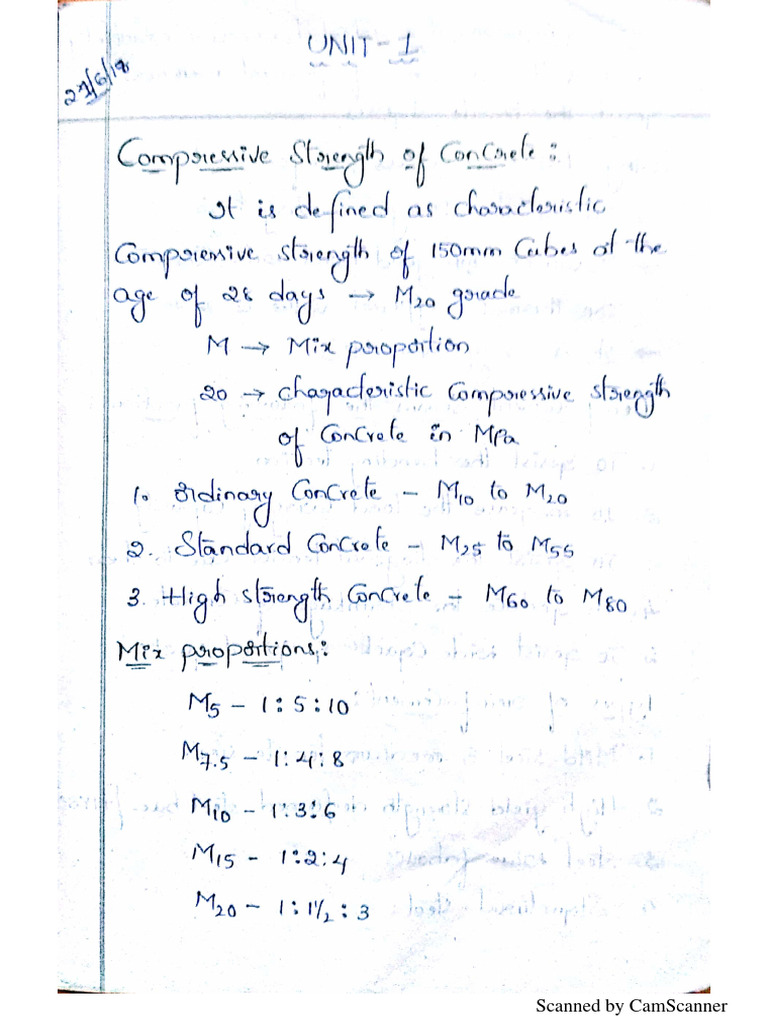 UNIT - 1
27/6/18
Compressive Strength of Concrete :
It is defined as characteristic
Compressive strength of 150mm Cubes at the
age of 28 days → M20 grade
M → Mix proportion
20 → characteristic Compressive strength
of Concrete in MPa
1. Ordinary Concrete - M10 to M20
2. Standard Concrete - M25 to M55
3. High strength Concrete - M60 to M80
Mix proportions:
M5 - 1:5:10
M7.5 - 1:4:8
M10 - 1:3:6
M15 - 1:2:4
M20 - 1:1½:3
Scanned by CamScanner